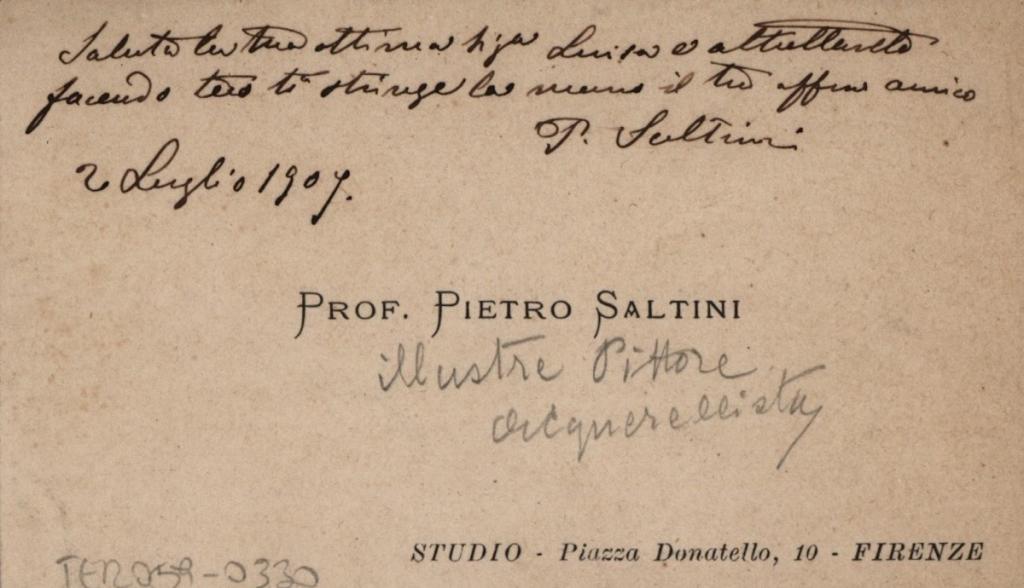 Saluta la tua ottima sig.a Luisa e altrettanto
facendo teco ti stringe la mano il tuo affmo amico
P. Saltini
2 Luglio 1907.
PROF. PIETRO SALTINI
illustre Pittore
acquerellista
STUDIO - Piazza Donatello, 10 - FIRENZE